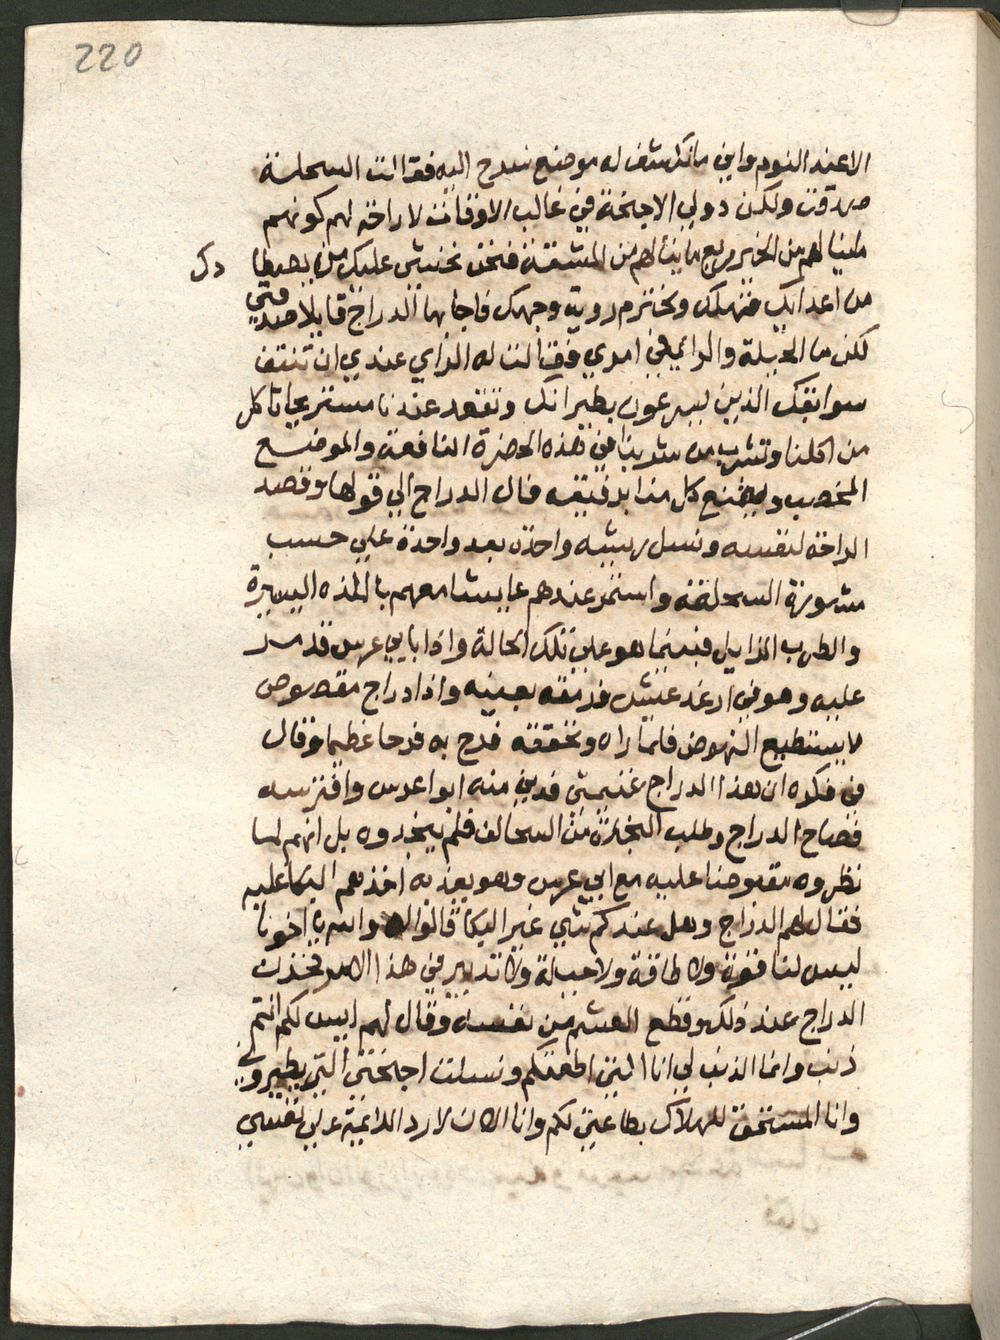 220
الا عند النوم واين ما تكشف له موضع نسرح اليه فقالت السحلفة
صدقت ولكن دولي الاجنحة في غالب الاوقات لا راحة لهم كونهم
ما ينالهم من الخير ربع ما ينالهم من المشقة فنحن نخشى عليك من بعيطا دك
من اعدايك فتهلك ونحترم روية وجهك فاجابها الدراج قايلا صدقتي
لكن ما الحيلة والراي في امري فقالت له الراي عندي ان تنتف
سوابقك الذين يسرعون بطيرانك وتقعد عندنا مستريحا تاكل
من اكلنا وتشرب من شربنا في هذه الحضرة النافعة والموضع
المخصب ويقنع كل منا برفيقه فمال الدراج الي قولها وقصد
الراحة لنفسه ونسل ريشه واحدة بعد واحدة علي حسب
مشورة السحلفة واستمر عندهم عايشا معهم باللذه اليسيرة
والطرب الزايل فبينما هو علي تلك الحالة واذا بابي عرس قد مر
عليه وهو في ارغد عيش فرمقه بعينه واذا دراج مقصوص
لا يستطيع النهوض فلما راه وتحققه فرح به فرحا عظيما وقال
في فكره ان هذا الدراج غنيمتي فدني منه ابو اعرس وافترسه
فصاح الدراج وطلب النجدة من السحالف فلم ينجدوه بل انهم لما
نظروه مقبوضا عليه مع ابي عرس وهو يعذبه اخذهم البكا عليه
فقال لهم الدراج وهل عندكم شي غير البكا قالوا له والله يا اخونا
ليس لنا قوة ولا طاقة ولا حيلة ولا تدبير في هذا الامر فحزن
الدراج عند ذلك وقطع العشم من نفسه وقال لهم ليس لكم انتم
ذنب وانما الذنب لي انا الذي اطعتكم ونسلت اجنحتي التي يطيروني
وانا المستحق للهلاك بطاعتي لكم وانا الان لارد اللايمة علي نفسي
فقال